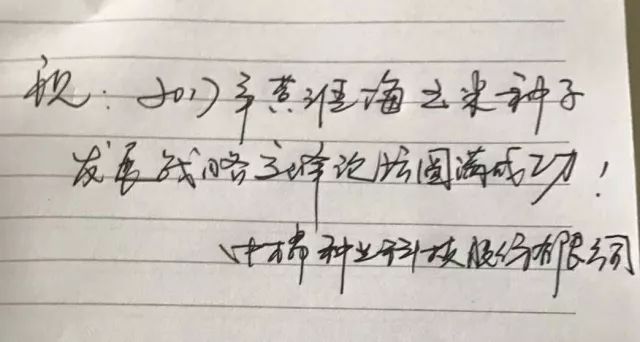 祝：2017年黄淮海玉米种子
发展战略高峰论坛圆满成功！
中棉种业科技股份有限公司